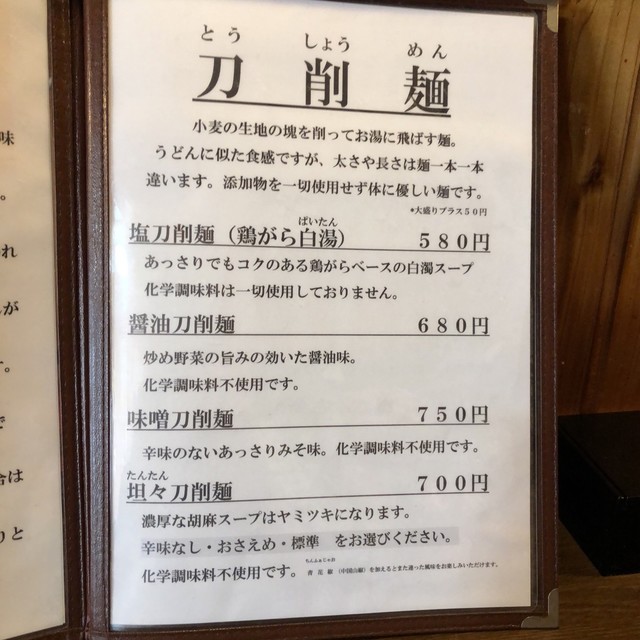 とう しょう めん
刀 削 麺
小麦の生地の塊を削ってお湯に飛ばす麺。
うどんに似た食感ですが、太さや長さは麺一本一本
違います。添加物を一切使用せず体に優しい麺です。
*大盛りプラス50円
ぱいたん
塩刀削麺（鶏がら白湯） 580円
あっさりでもコクのある鶏がらベースの白濁スープ
化学調味料は一切使用しておりません。
醤油刀削麺 680円
炒め野菜の旨みの効いた醤油味。
化学調味料不使用です。
味噌刀削麺 750円
辛味のないあっさりみそ味。化学調味料不使用です。
たんたん
坦々刀削麺 700円
濃厚な胡麻スープはヤミツキになります。
辛味なし・おさえめ・標準 をお選びください。
化学調味料不使用です。 青花椒（中国山椒）を加えるとまた違った風味をお楽しみいただけます。